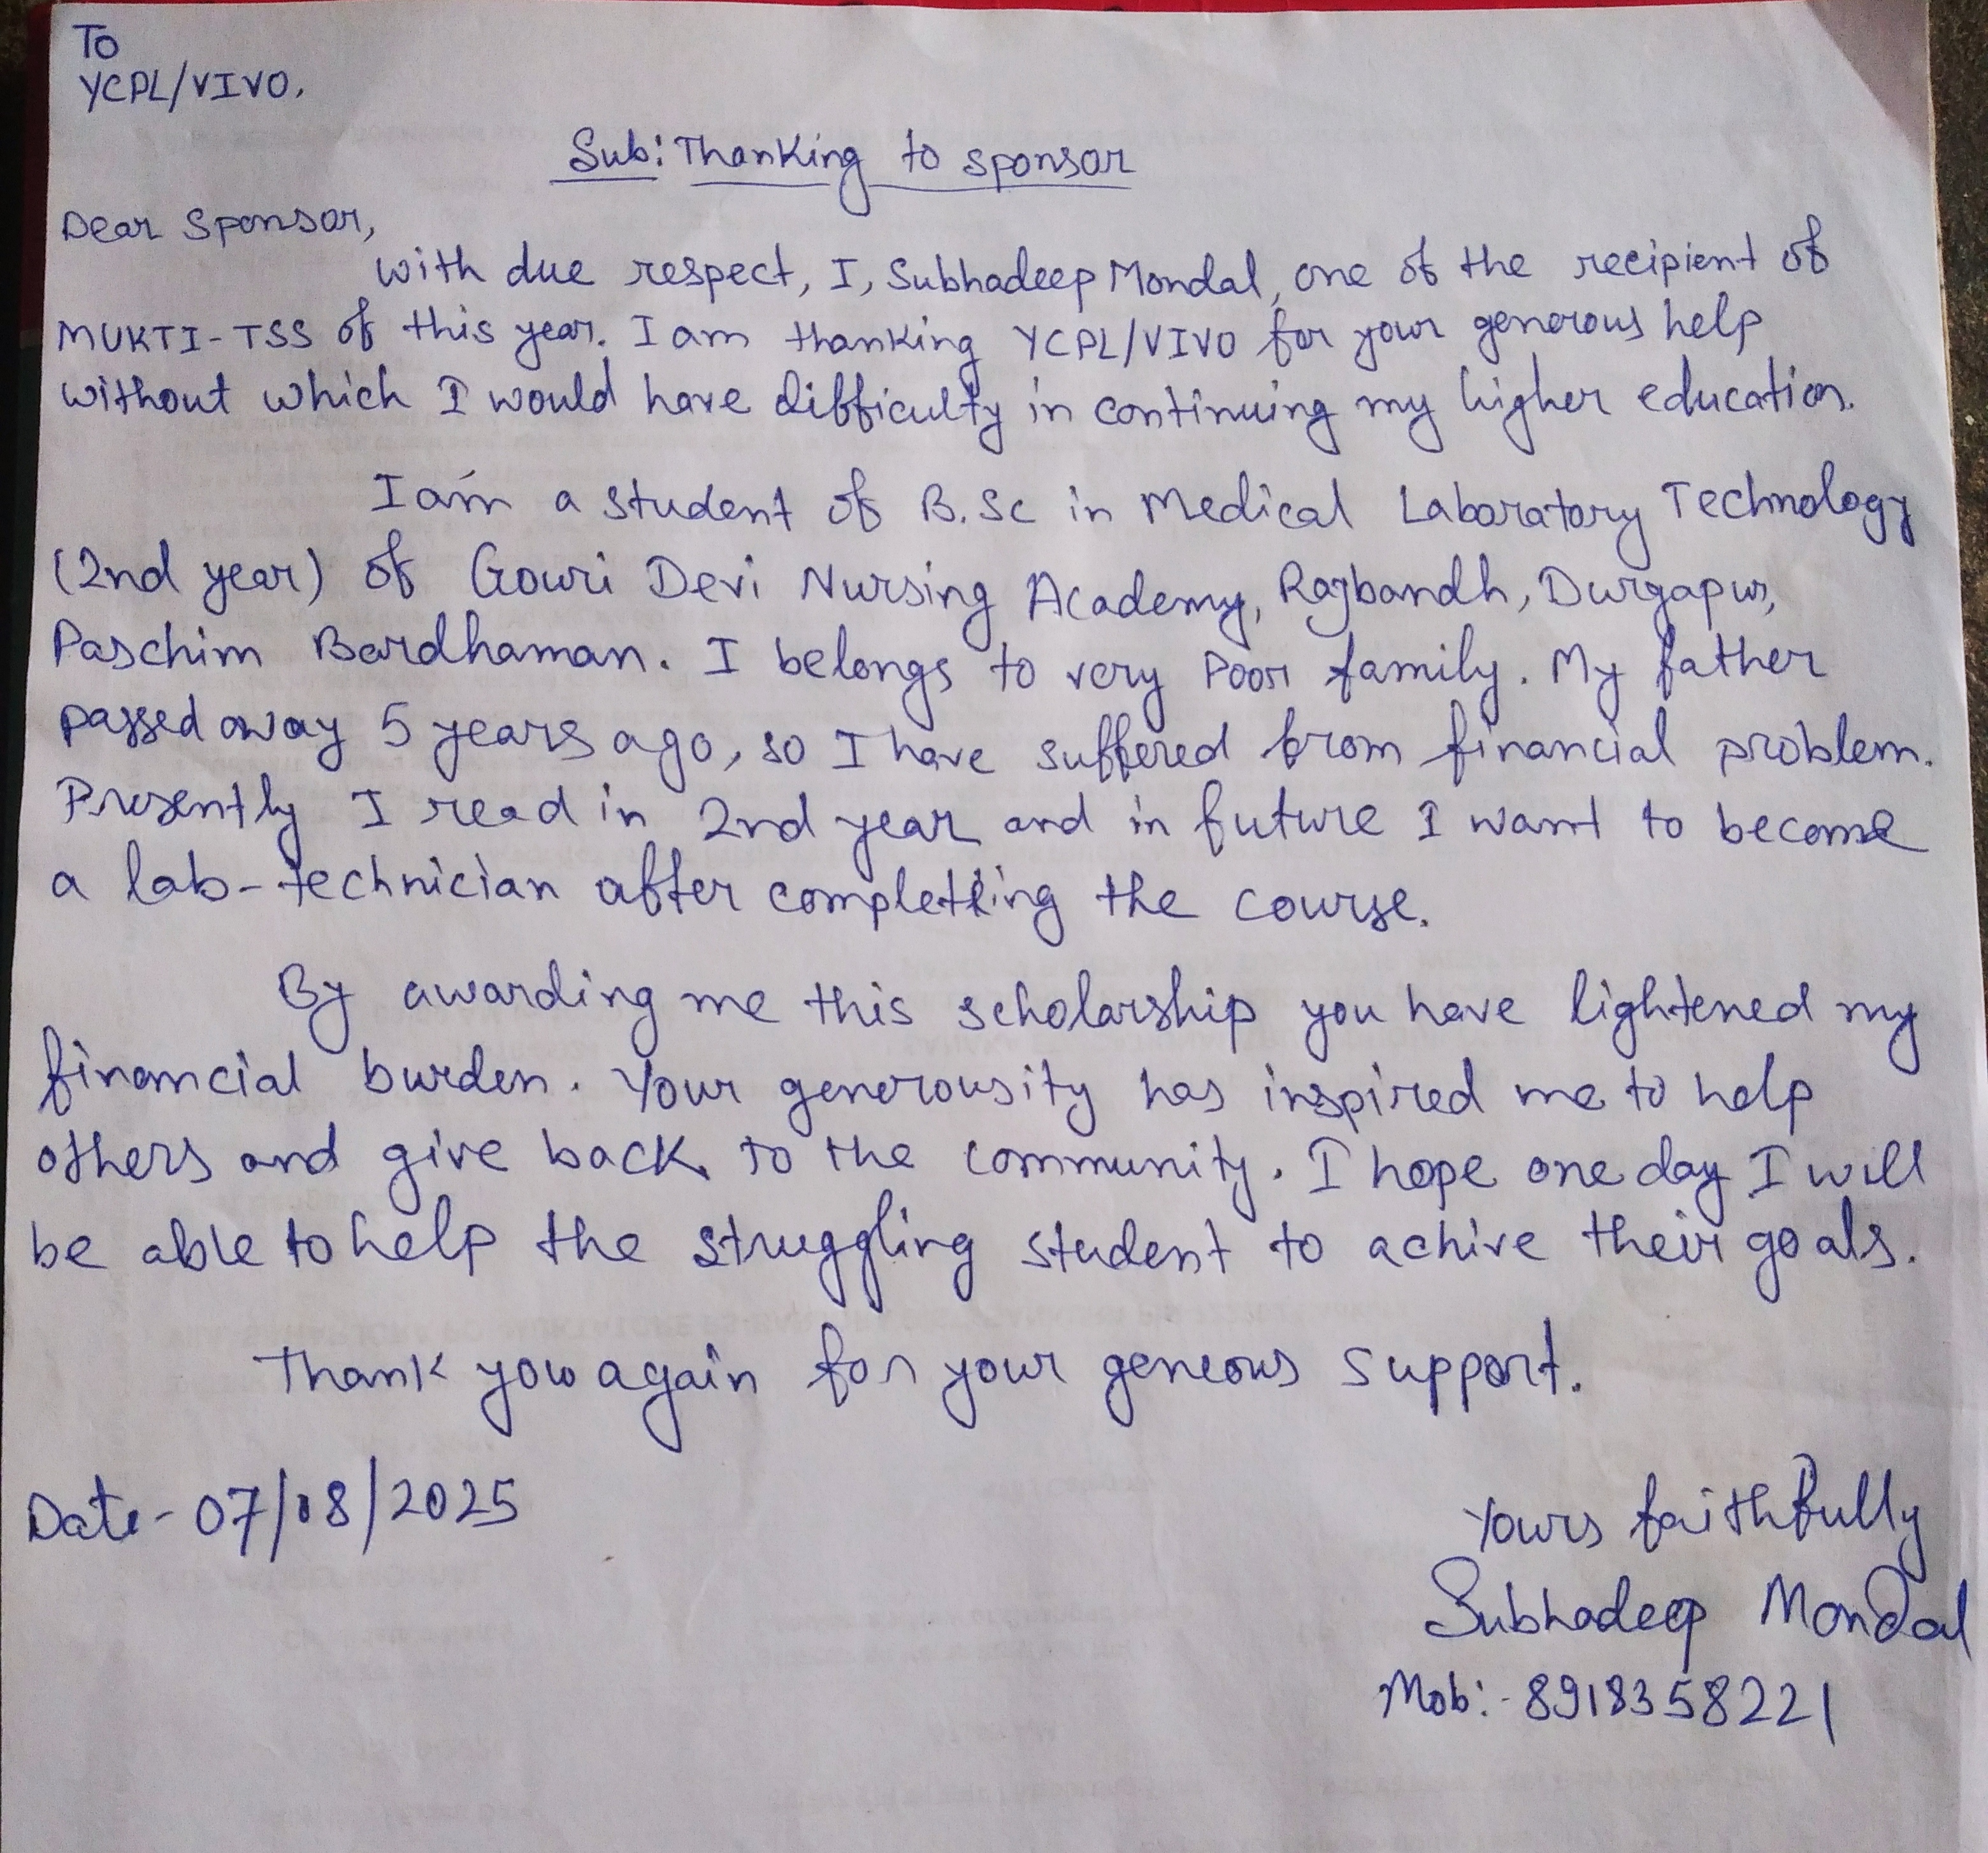 To
YCPL/VIVO.
Sub: Thanking to sponsor
Dear Sponsor,
with due respect, I, Subhadeep Mondal, one of the recipient of
MUKTI-TSS of this year. I am thanking YCPL/VIVO for your generous help
without which I would have difficulty in continuing my higher education.
I am a student of B.Sc in Medical Laboratory Technology
(2nd year) of Gouri Devi Nursing Academy, Rajbandh, Durgapur,
Paschim Bardhaman. I belongs to very poor family. My father
passed away 5 years ago, so I have suffered from financial problem.
Presently I read in 2nd year and in future I want to become
a lab-technician after completting the course.
By awarding me this scholarship you have lightened my
financial burden. Your generousity has inspired me to help
others and give back to the community. I hope one day I will
be able to help the struggling student to achive their goals.
Thank you again for your geneous support.
Date- 07/08/2025
Yours faithfully
Subhadeep Mondal
Mob:- 8918358221